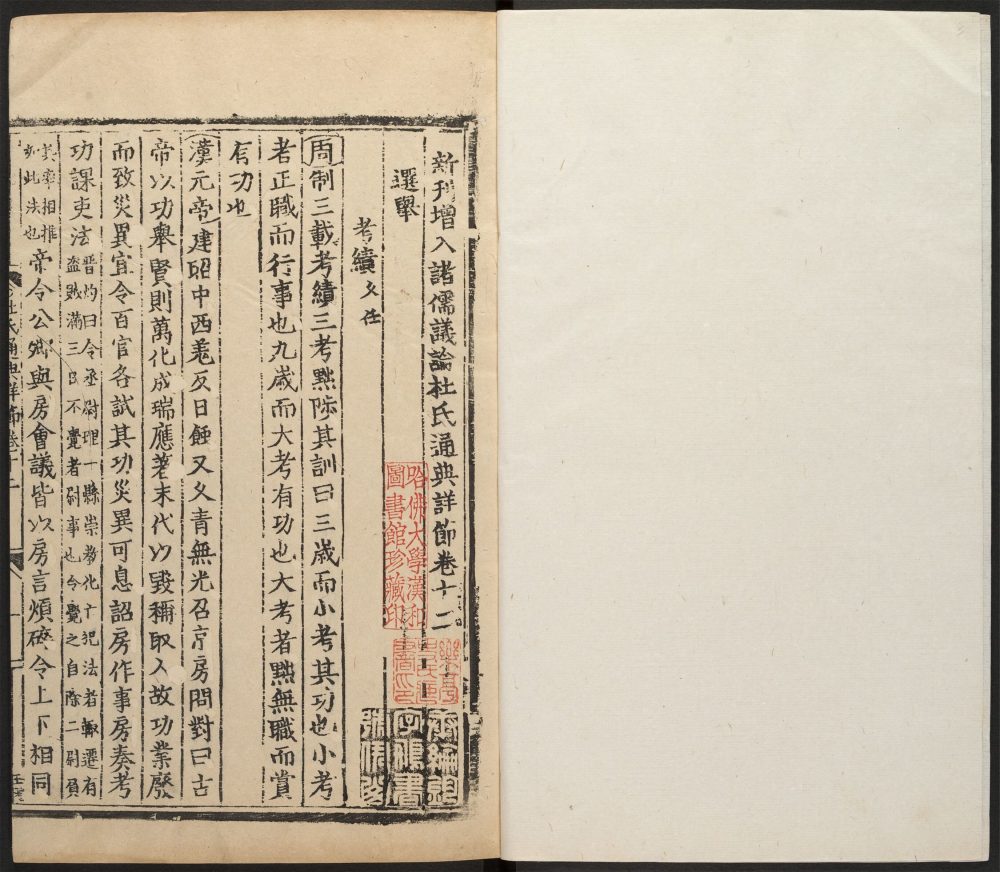 新刊增入諸儒議論杜氏通典詳節卷十二
哈佛大學漢和
圖書館珍藏印
選舉
考績久任
周制三載考績三考黜陟其訓曰三歲而小考其功也小考
者正職而行事也九歲而大考有功也大考者黜無職而賞
有功也
漢元帝建昭中西羌反日蝕又久青無光召京房問對曰古
帝以功舉賢則萬化成瑞應著末代以毀稱取人故功業廢
而致災異宜令百官各試其功災異可息詔房作事房奏考
功課吏法晉灼曰令丞尉理一縣崇教化亡犯法者輒遷有
盜賊滿三日不覺者尉事也令覺之自除二尉負
其率相推
如此法也帝令公卿與房會議皆以房言煩碎令上下相同
杜氏通典詳節卷十二